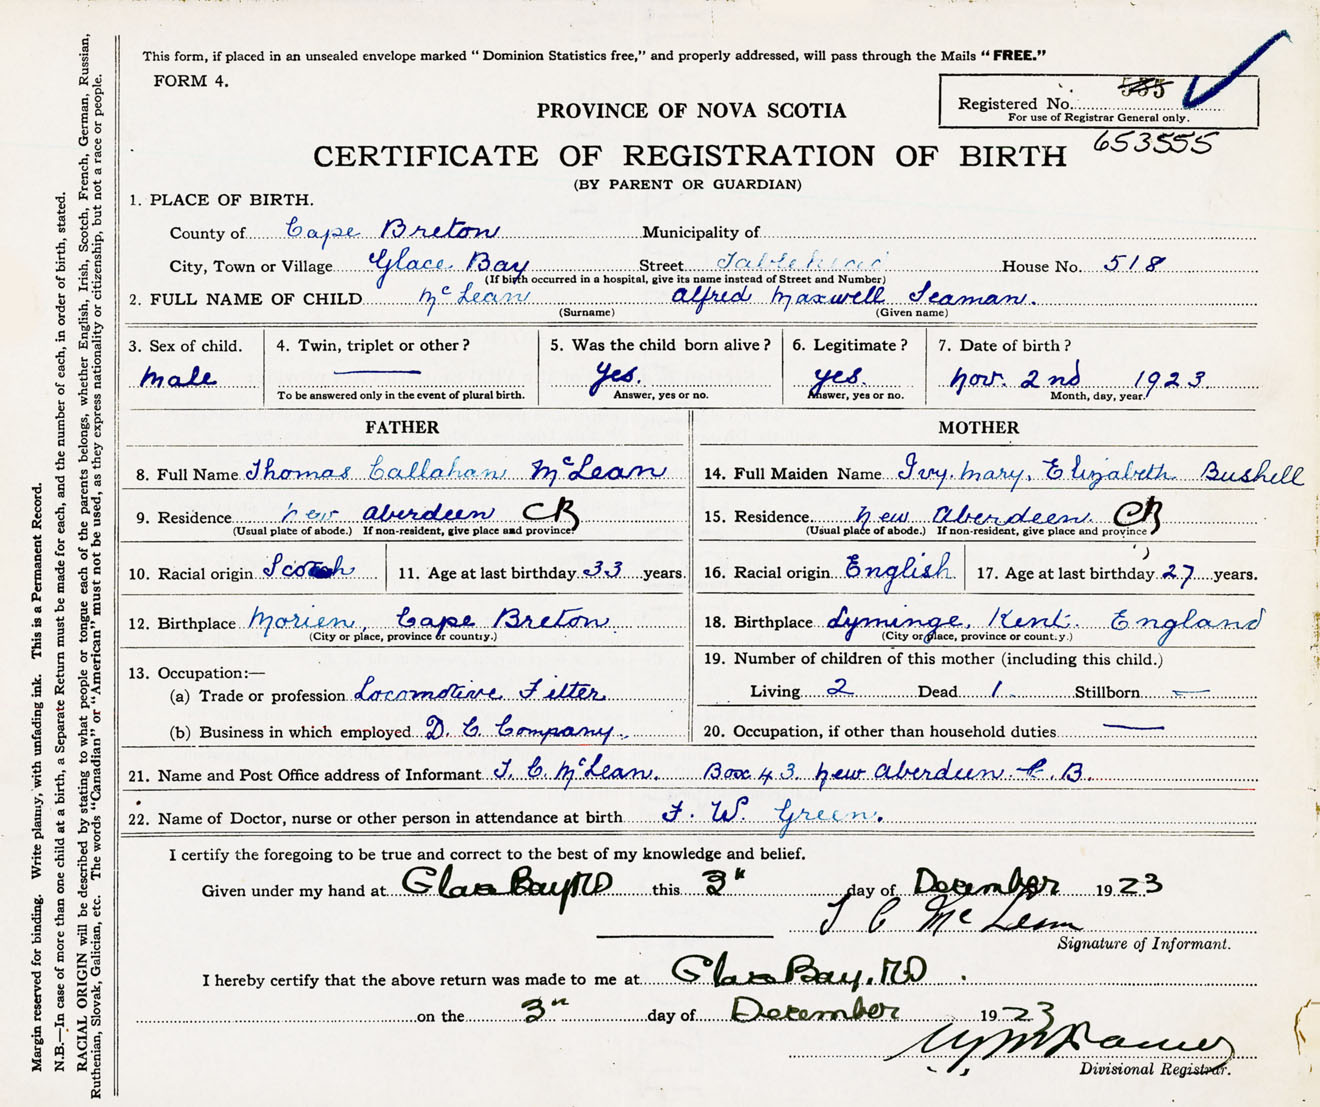 This form, if placed in an unsealed envelope marked "Dominion Statistics free," and properly addressed, will pass through the Mails "FREE."
FORM 4.
535
Registered No.
For use of Registrar General only.
653555
PROVINCE OF NOVA SCOTIA
CERTIFICATE OF REGISTRATION OF BIRTH
(BY PARENT OR GUARDIAN)
1. PLACE OF BIRTH.
County of Cape Breton Municipality of
City, Town or Village Glace Bay Street House No. 518
(If birth occurred in a hospital, give its name instead of Street and Number)
2. FULL NAME OF CHILD McLean Alfred Maxwell Seaman.
(Surname) (Given name)
3. Sex of child. 4. Twin, triplet or other? 5. Was the child born alive? 6. Legitimate? 7. Date of birth?
Male — yes. yes. Nov. 2nd 1923.
To be answered only in the event of plural birth. Answer, yes or no. Answer, yes or no. Month, day, year.
FATHER MOTHER
8. Full Name Thomas Callahan McLean 14. Full Maiden Name Ivy. Mary. Elizabeth Bushell
9. Residence New Aberdeen CB 15. Residence New Aberdeen. CB
(Usual place of abode.) If non-resident, give place and province (Usual place of abode.) If non-resident, give place and province
10. Racial origin Scotch 11. Age at last birthday 33 years. 16. Racial origin English 17. Age at last birthday 27 years.
12. Birthplace Morien, Cape Breton. 18. Birthplace Lyminge, Kent. England
(City or place, province or country.) (City or place, province or count.y.)
13. Occupation:— 19. Number of children of this mother (including this child.)
(a) Trade or profession Locomotive Fitter Living 2 Dead 1. Stillborn —
(b) Business in which employed D. C. Company. 20. Occupation, if other than household duties —
21. Name and Post Office address of Informant T. C. McLean. Box 43. New Aberdeen. C. B.
22. Name of Doctor, nurse or other person in attendance at birth F. W. Green.
I certify the foregoing to be true and correct to the best of my knowledge and belief.
Given under my hand at Glace Bay this 3rd day of December 1923
T C McLean
Signature of Informant.
I hereby certify that the above return was made to me at Glace Bay.
on the 3rd day of December 1923
Divisional Registrar.
Margin reserved for binding. Write plainly, with unfading ink. This is a Permanent Record.
N.B.—In case of more than one child at a birth, a Separate Return must be made for each, and the number of each, in order of birth, stated.
RACIAL ORIGIN will be described by stating to what people or tongue each of the parents belongs, whether English, Irish, Scotch, French, German, Russian,
Ruthenian, Slovak, Galician, etc. The words "Canadian" or "American" must not be used, as they express nationality or citizenship, but not a race or people.